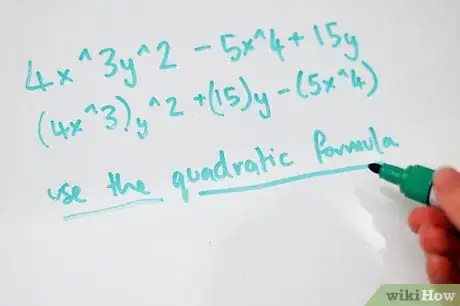 4x^3y^2 - 5x^4 + 15y
(4x^3)y^2 + (15)y - (5x^4)
use the quadratic formula
wikiHow